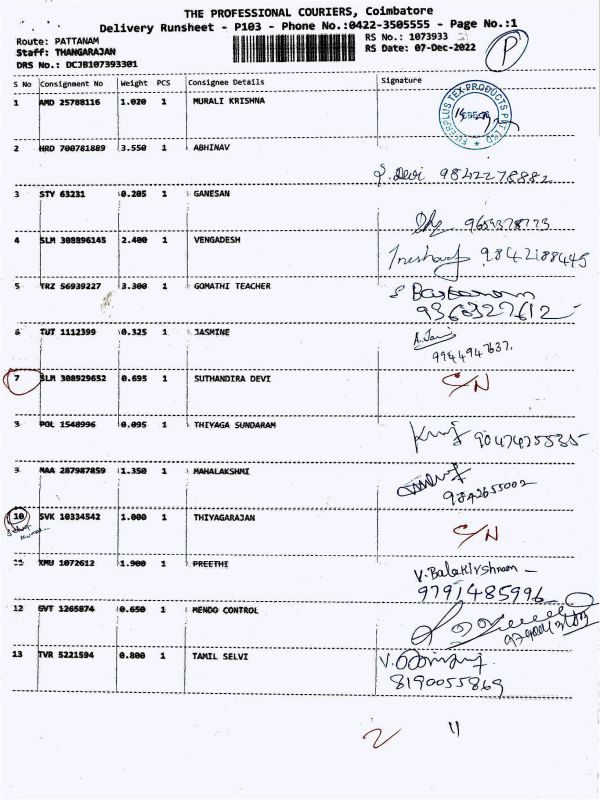 THE PROFESSIONAL COURIERS, Coimbatore
Delivery Runsheet - P103 - Phone No.:0422-3505555 - Page No.:1
Route: PATTANAM RS No.: 1073933
Staff: THANGARAJAN RS Date: 07-Dec-2022 P
DRS No.: DCJB107393301
S No Consignment No Weight PCS Consignee Details Signature
1 AMD 25788116 1.020 1 MURALI KRISHNA
2 HRD 700781889 3.550 1 ABHINAV Devi 9842278882
3 STY 63231 0.205 1 GANESAN
4 SLM 308896145 2.400 1 VENGADESH 9842188445
5 TRZ 56939227 3.300 1 GOMATHI TEACHER
9363327612
6 TUT 1112399 0.325 1 JASMINE
7 SLM 308929652 0.695 1 SUTHANDIRA DEVI C/N
POL 1548996 0.095 1 THIYAGA SUNDARAM
MAA 287987859 1.350 1 MAHALAKSHMI
9842655002
10 SVK 10334542 1.000 1 THIYAGARAJAN C/N
11 KMU 1072612 1.900 1 PREETHI V. Balakirshnan
9791485996
12 GVT 1265874 0.650 1 MENDO CONTROL
13 TVR 5221594 0.800 1 TAMIL SELVI
8190055869
2 11